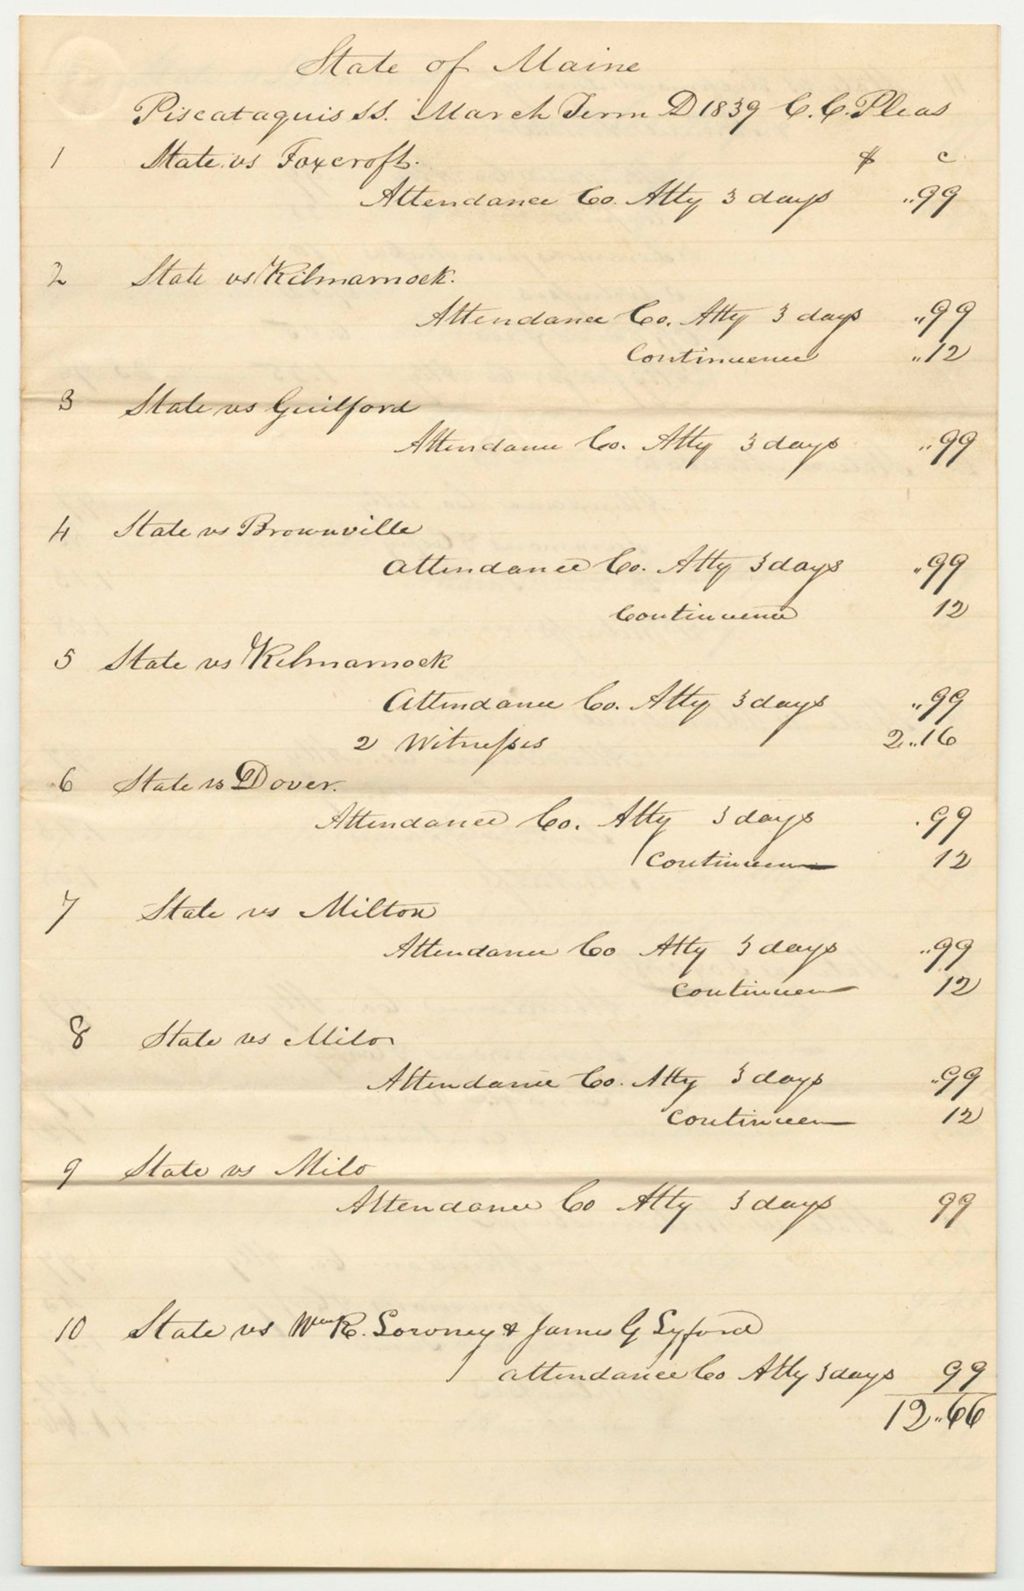 State of Maine
Piscataquis SS. March Term D 1839 C. C. Pleas
1 State vs Foxcroft. $ c
Attendance Co. Atty 3 days "99
2 State vs Kilmarnock.
Attendance Co. Atty 3 days "99
Continuence "12
3 State vs Guilford
Attendance Co. Atty 3 days "99
4 State vs Brownville
Attendance Co. Atty 3 days "99
Continuence 12
5 State vs Kilmarnock
Attendance Co. Atty 3 days "99
2 Witnesses 2"16
6 State vs Dover.
Attendance Co. Atty 3 days .99
Continuen 12
7 State vs Milton
Attendance Co Atty 3 days "99
Continuen 12
8 State vs Milo
Attendance Co. Atty 3 days "99
Continuen 12
9 State vs Milo
Attendance Co Atty 3 days 99
10 State vs Wm R. Lowney & James G Lyford
attendance Co Atty 3 days 99
12"66